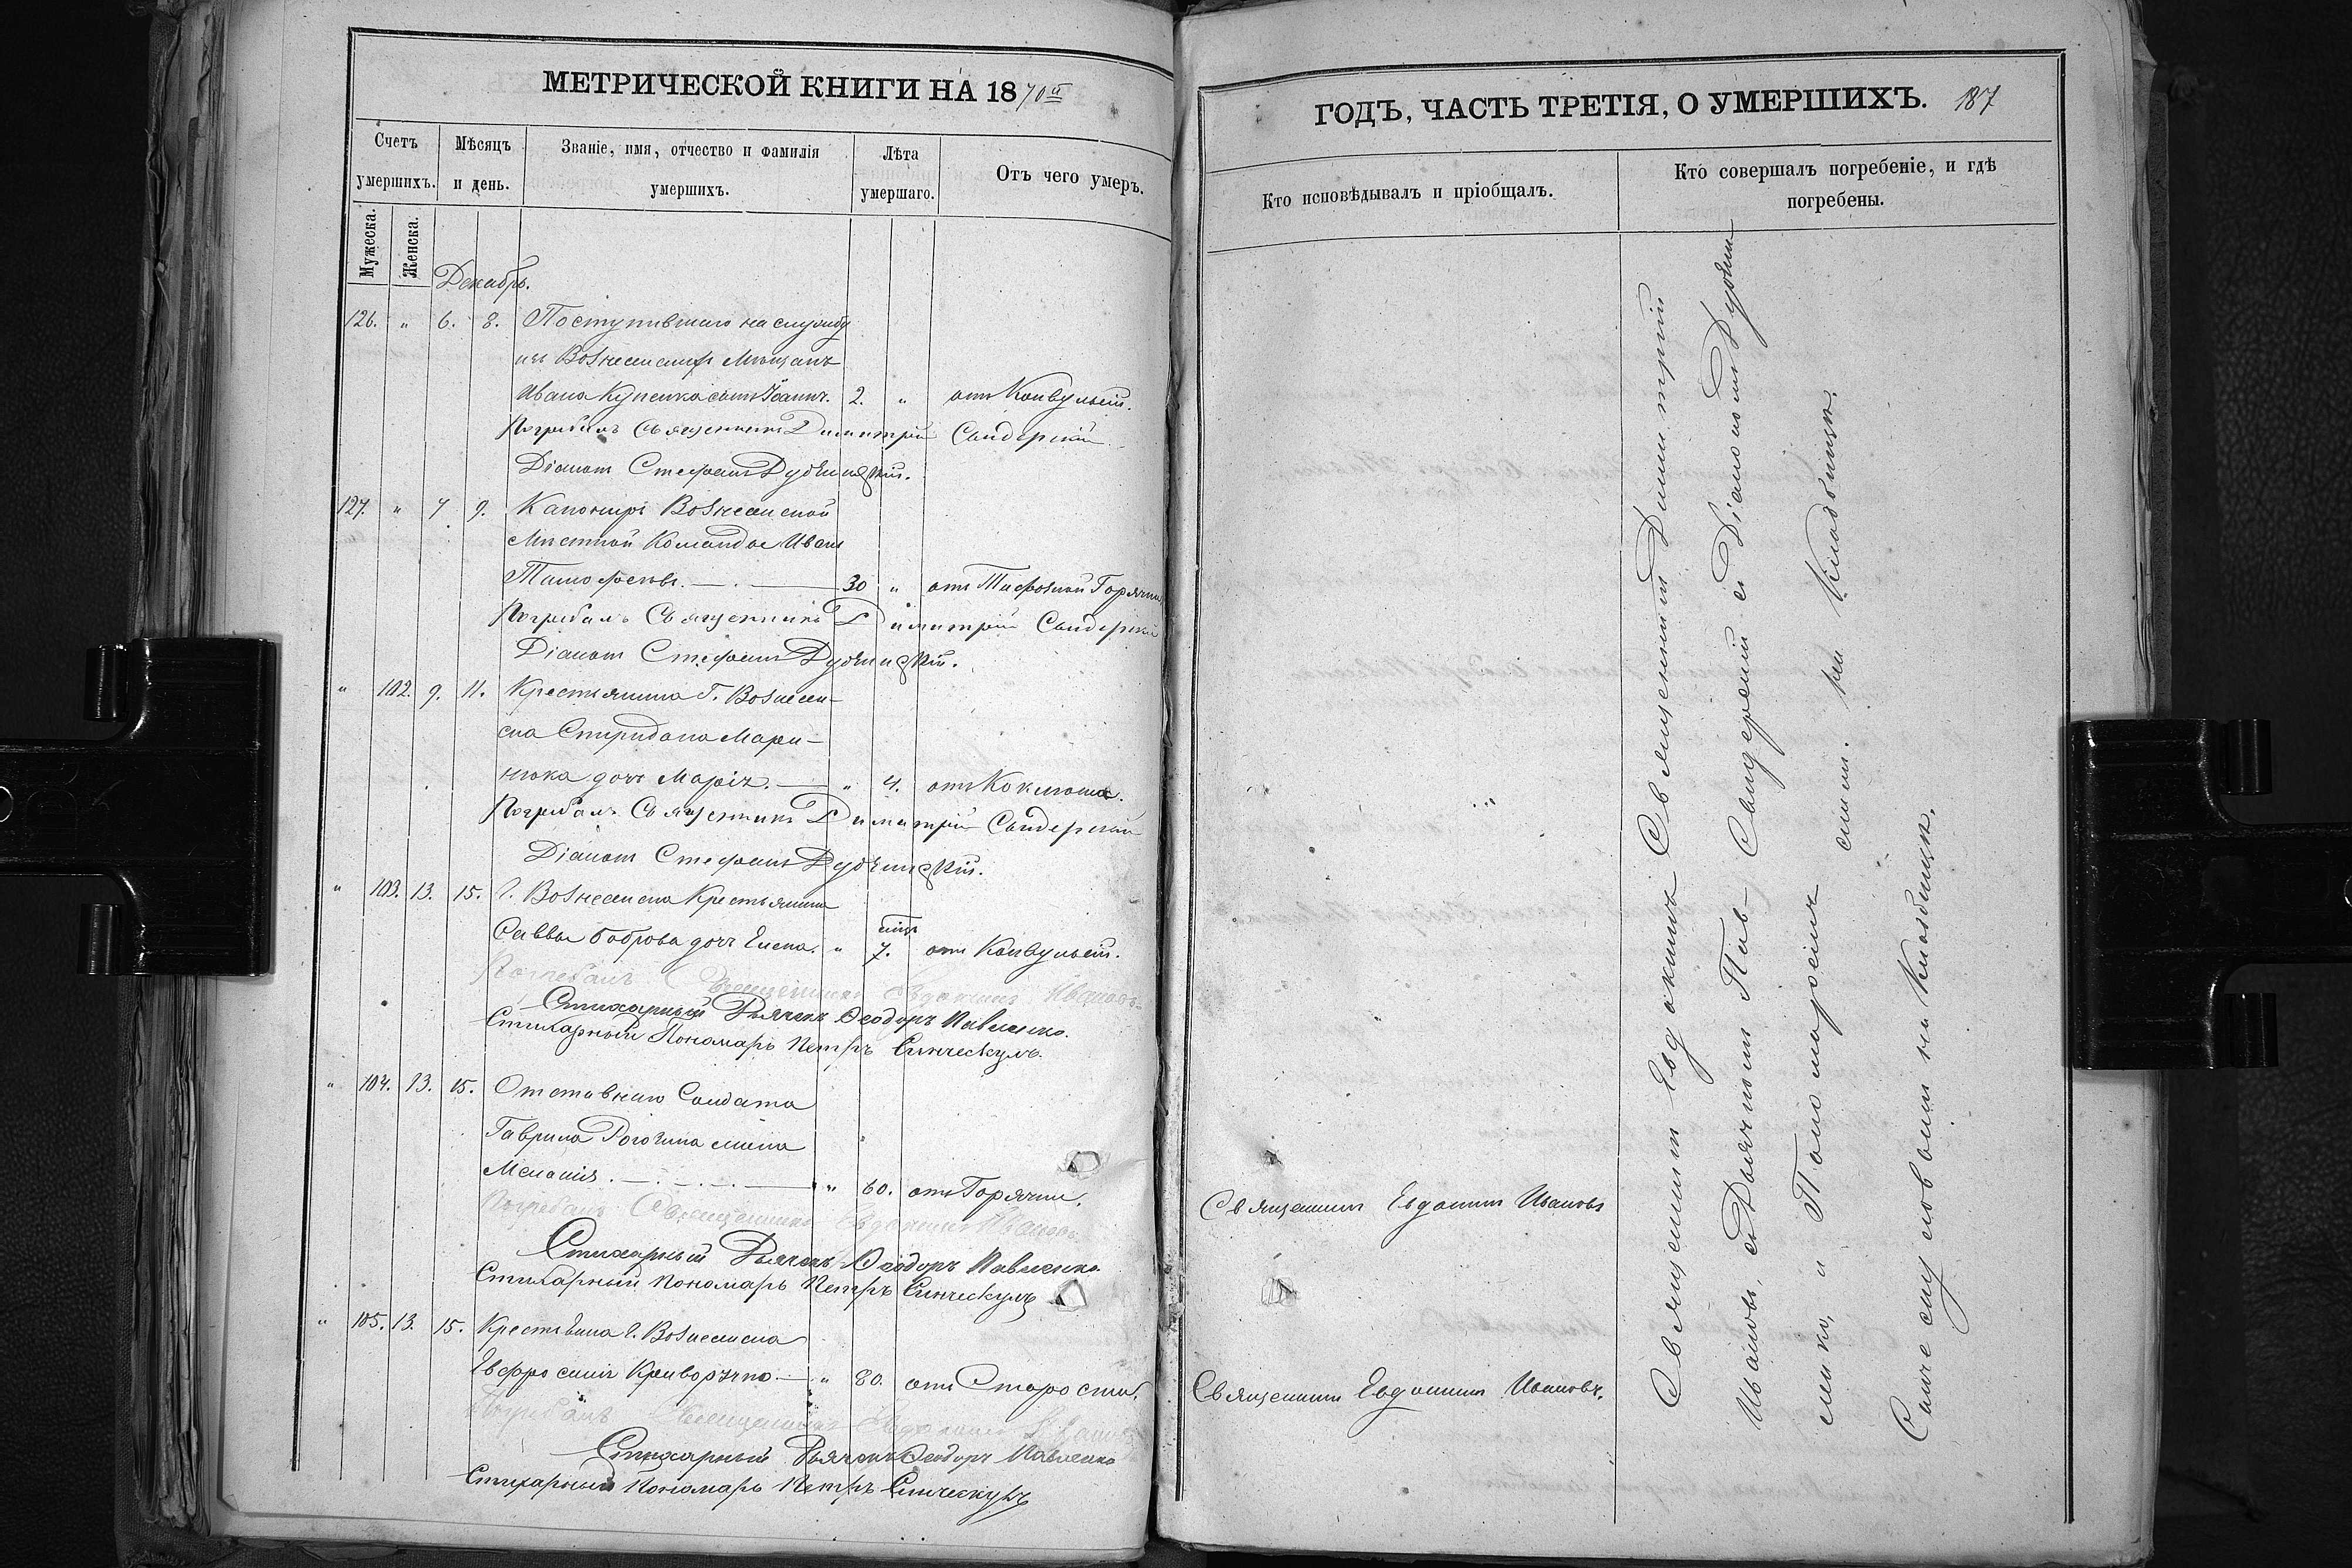 МЕТРИЧЕСКОЙ КНИГИ НА 1870й
Счетъ умершихъ.
Мѣсяцъ и день.
Званіе, имя, отчество и фамилія умершихъ.
Лѣта умершаго.
Отъ чего умеръ.
Мужеска.
Женска.
Декабрь.
126. " 6. 8. Поступившаго на службу
изъ Вознесенскихъ Мѣщанъ
Ивана сынъ Іоаннъ. 2. " отъ Конвульсій.
Погребалъ Священникъ Димитрій Свидерскій
Діаконъ Стефанъ
127. " 7 9. Канониръ Вознесенской
Мѣстной Команды Иванъ
30 " отъ Тифозной Горячки
Погребалъ Священникъ Димитрій Свидерскій
Діаконъ Стефанъ
" 102. 9. 11. Крестьянина Г. Вознесен-
ска Спиридона Мари-
нюка дочь Марія. " 4. отъ Коклюша.
Погребалъ Священникъ Димитрій Свидерскій
Діаконъ Стефанъ
" 103. 13. 15. Г. Вознесенска Крестьянина
Саввы Боброва дочь Елена. " 7. отъ Конвульсій.
Погребалъ Священникъ Евдокимъ Ивановъ
Стихарный Дьячекъ Ѳеодоръ Павленко.
Стихарный Пономарь Петръ
" 104. 13. 15. Отставнаго Солдата
Гаврила жена
Меланія. " 60. отъ Горячки.
Погребалъ Священникъ Евдокимъ Ивановъ
Стихарный Дьячекъ Ѳеодоръ Павленко
Стихарный Пономарь Петръ
" 105. 13. 15. Крестьянка г. Вознесенска
Евфросинія " 80. отъ Старости.
Погребалъ Священникъ Евдокимъ Ивановъ
Стихарный Дьячекъ Ѳеодоръ Павленко
Стихарный Пономарь Петръ
ГОДЪ, ЧАСТЬ ТРЕТІЯ, О УМЕРШИХЪ. 187
Кто исповѣдывалъ и пріобщалъ.
Кто совершалъ погребеніе, и гдѣ погребены.
Священникъ Евдокимъ Ивановъ
Священникъ Евдокимъ Ивановъ.
Священникъ Евдокимъ
Ивановъ, съ Дьячкомъ Пав-
ленко, и Пономаремъ
на Кладбищѣ.
Священникъ Димитрій
Свидерскій съ Діакономъ
на Кладбищѣ.